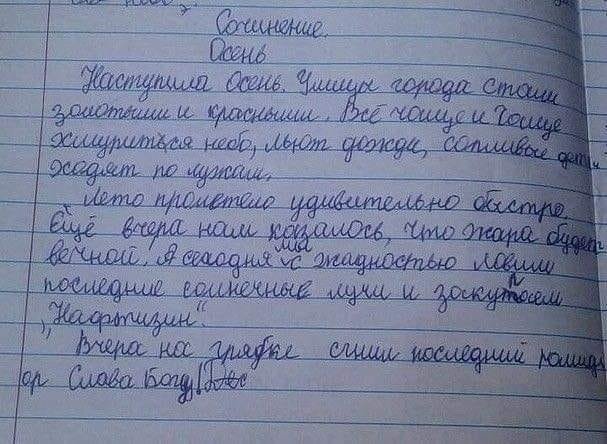 Сочинение.
Осень
Наступила Осень. Улицы города стали
золотыми и красными. Всё чаще и Чаще
хмуриться небо, льют дожди, сопливые дети
ходят по лужам.
Лето пролетело удивительно быстро.
Ещё вчера нам казалось, что жара будет
вечной. А сегодня мы с жадностью ловим
последние солнечные лучи и закупаем
„Нафтизин“.
Вчера на грядке сгнил последний помид
ор Слава Богу!